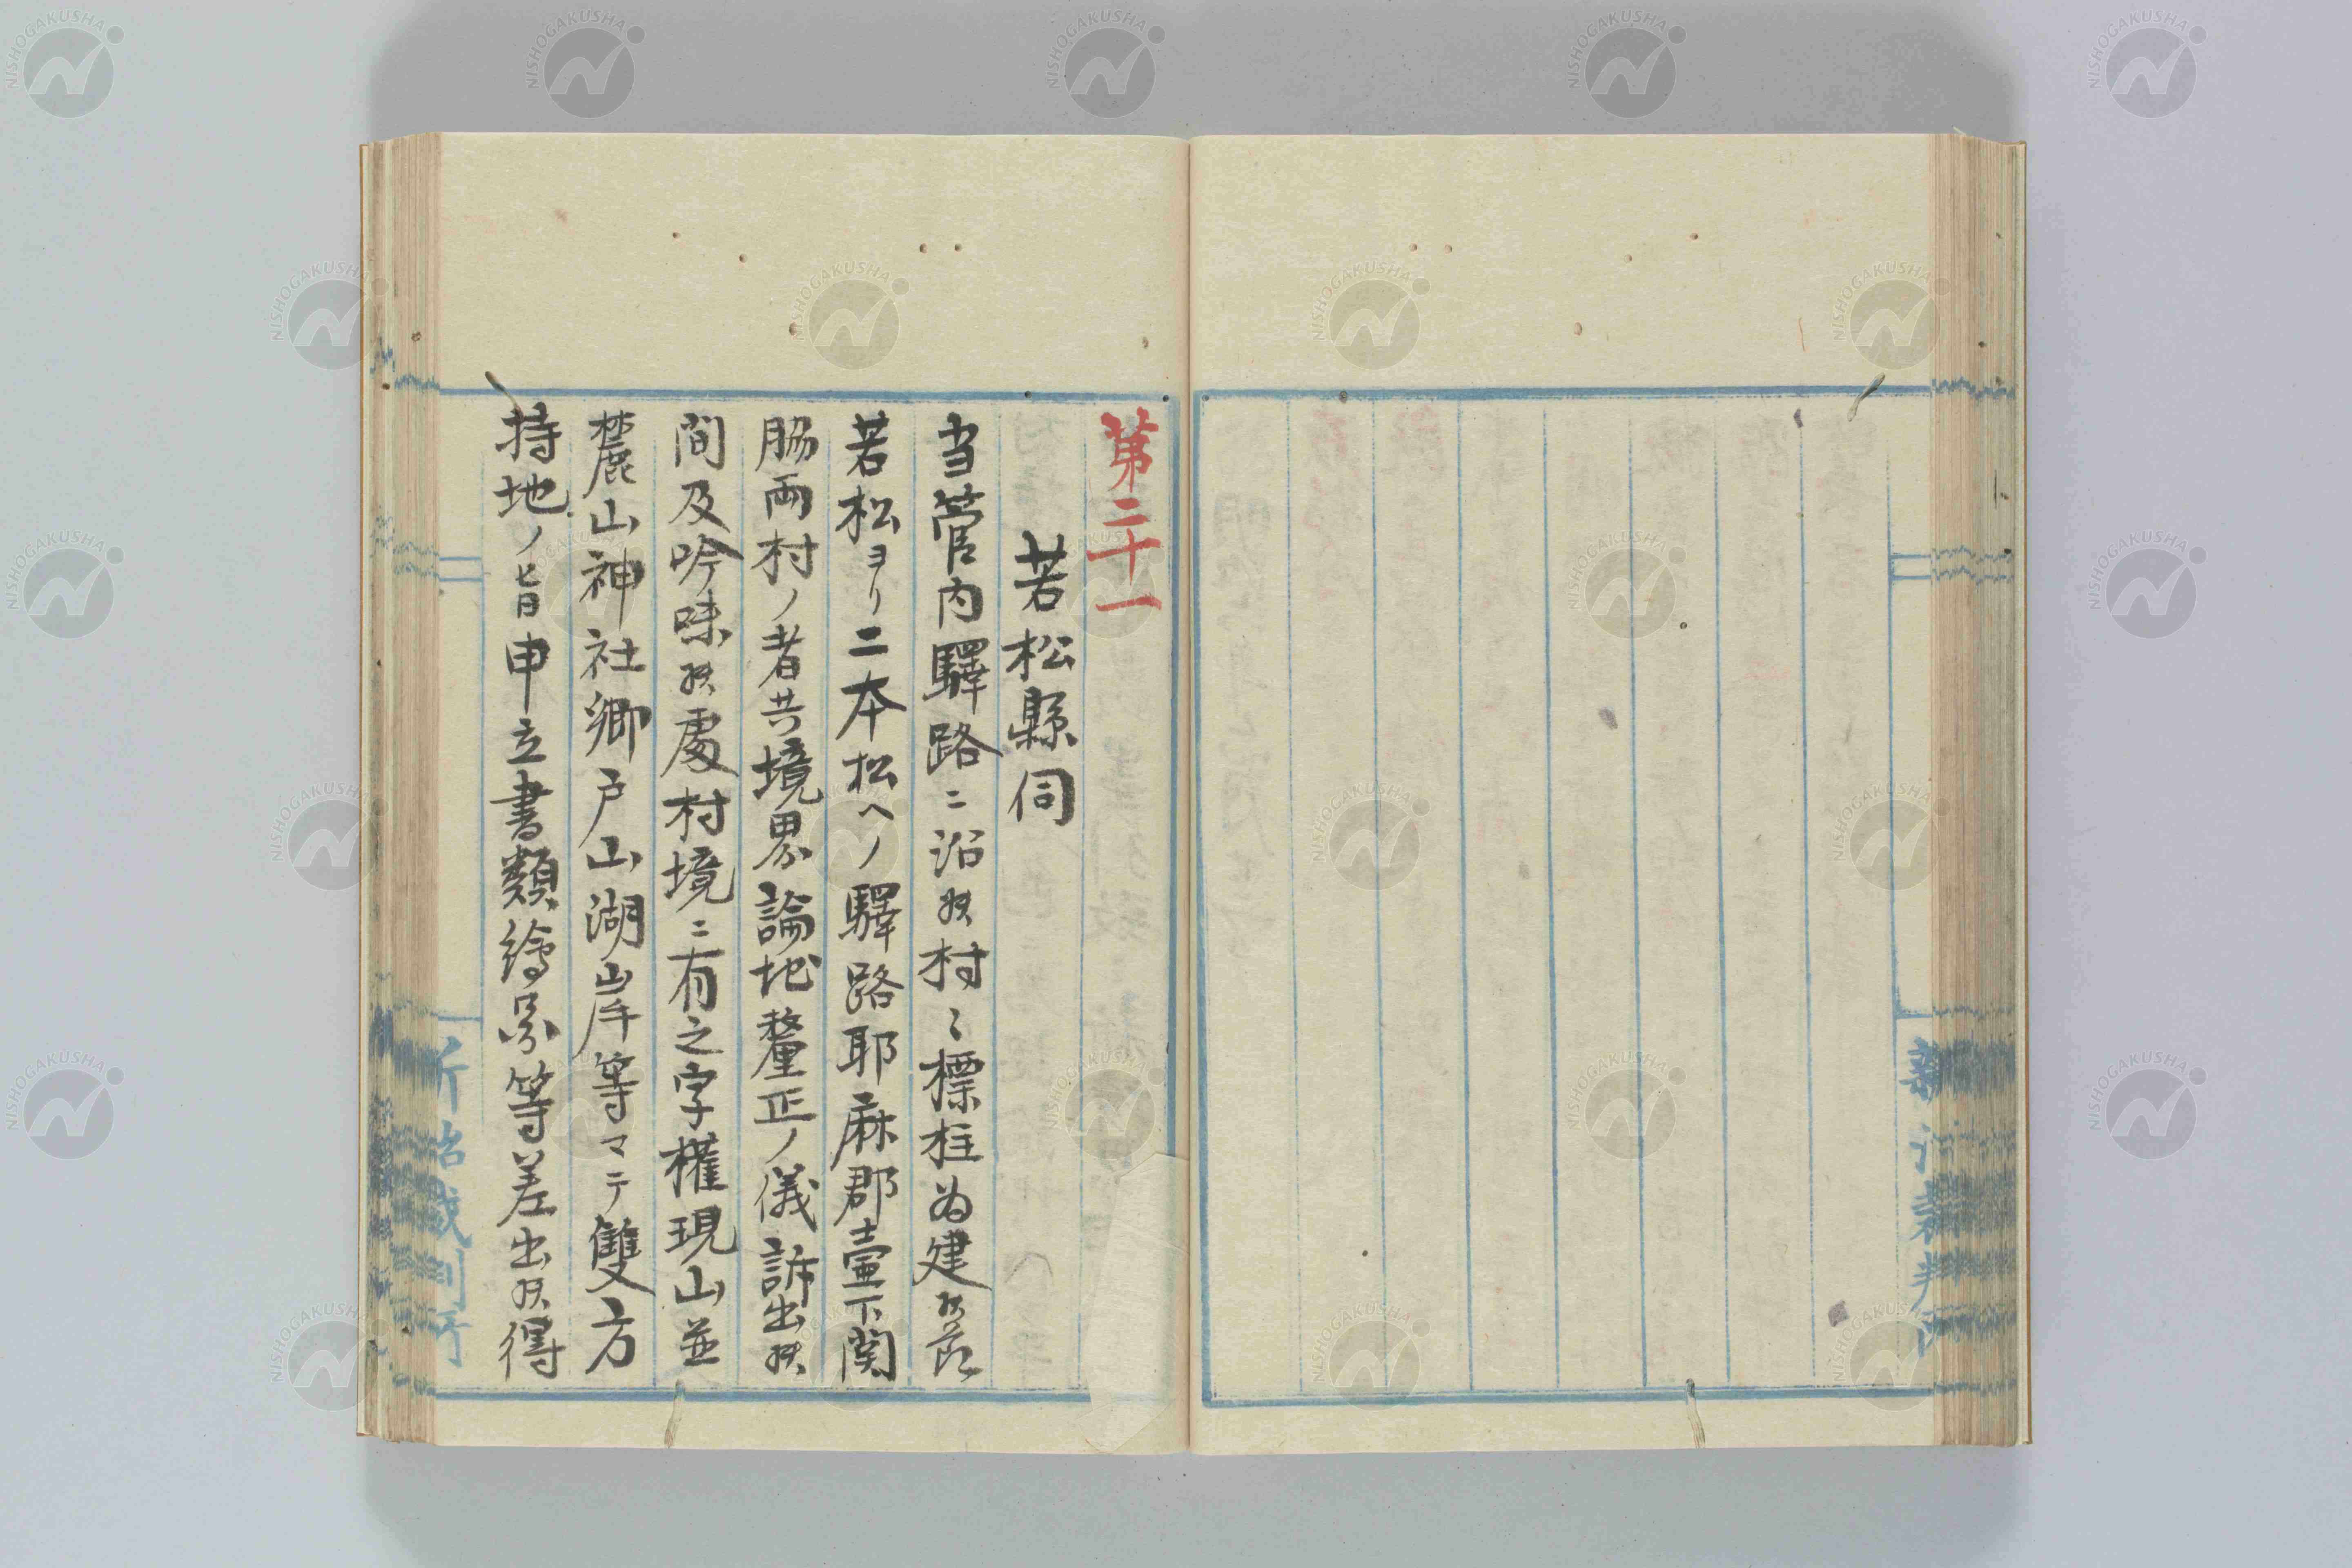 第二十一
若松縣伺
当管内驛路ニ沿候村々標柱為建候節
若松ヨリ二本松ヘノ驛路耶麻郡壷下関
脇両村ノ者共境界論地釐正ノ儀訴出候
間及吟味候處村境ニ有之字権現山並
麓山神社郷戸山湖岸等マテ雙方
持地ノ旨申立書類繪図等差出候得